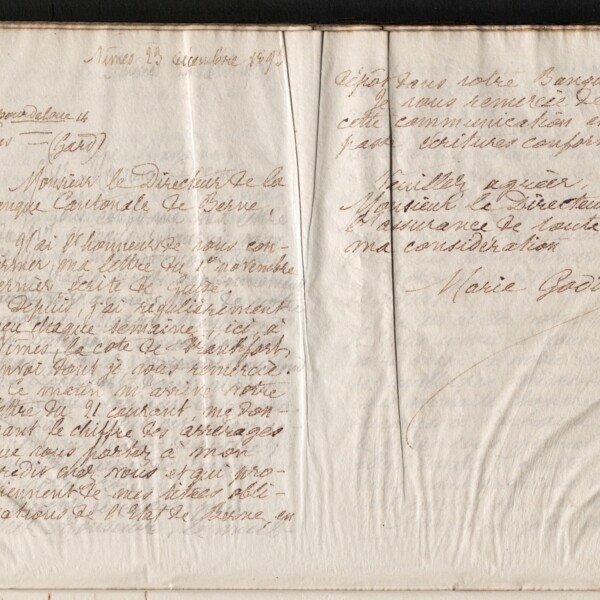 Nîmes 23 décembre 189
(Gard)
Monsieur le Directeur de la
Cantonale de Berne,
J'ai l'honneur de vous con-
ma lettre du 1er novembre
ernier écrite de Guise
Depuis, j'ai régulièrement
çu chaque semaine, ici, à
Nîmes, la cote de Francfort,
envoi dont je vous remercie.
Ce matin m'arrive votre
ettre du 21 courant, me don-
ant le chiffre des arrérages
que vous portez à mon
rédit chez vous et qui pro-
iennent de mes titres obli-
ations de l'Etat de Berne, en
dépôt dans votre Banqu
Je vous remercie de
cette communication e
passe écritures conform
Veuillez agréer
Monsieur le Directeu
l'assurance de toute
ma considération
Marie Godi